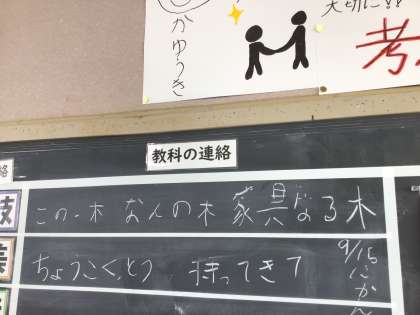 かゆうき
大切に!!
考
教科の連絡
絡
技
この木 なんの木 家具になる木
ちょうこくとう 持ってきて
9/15
にかん